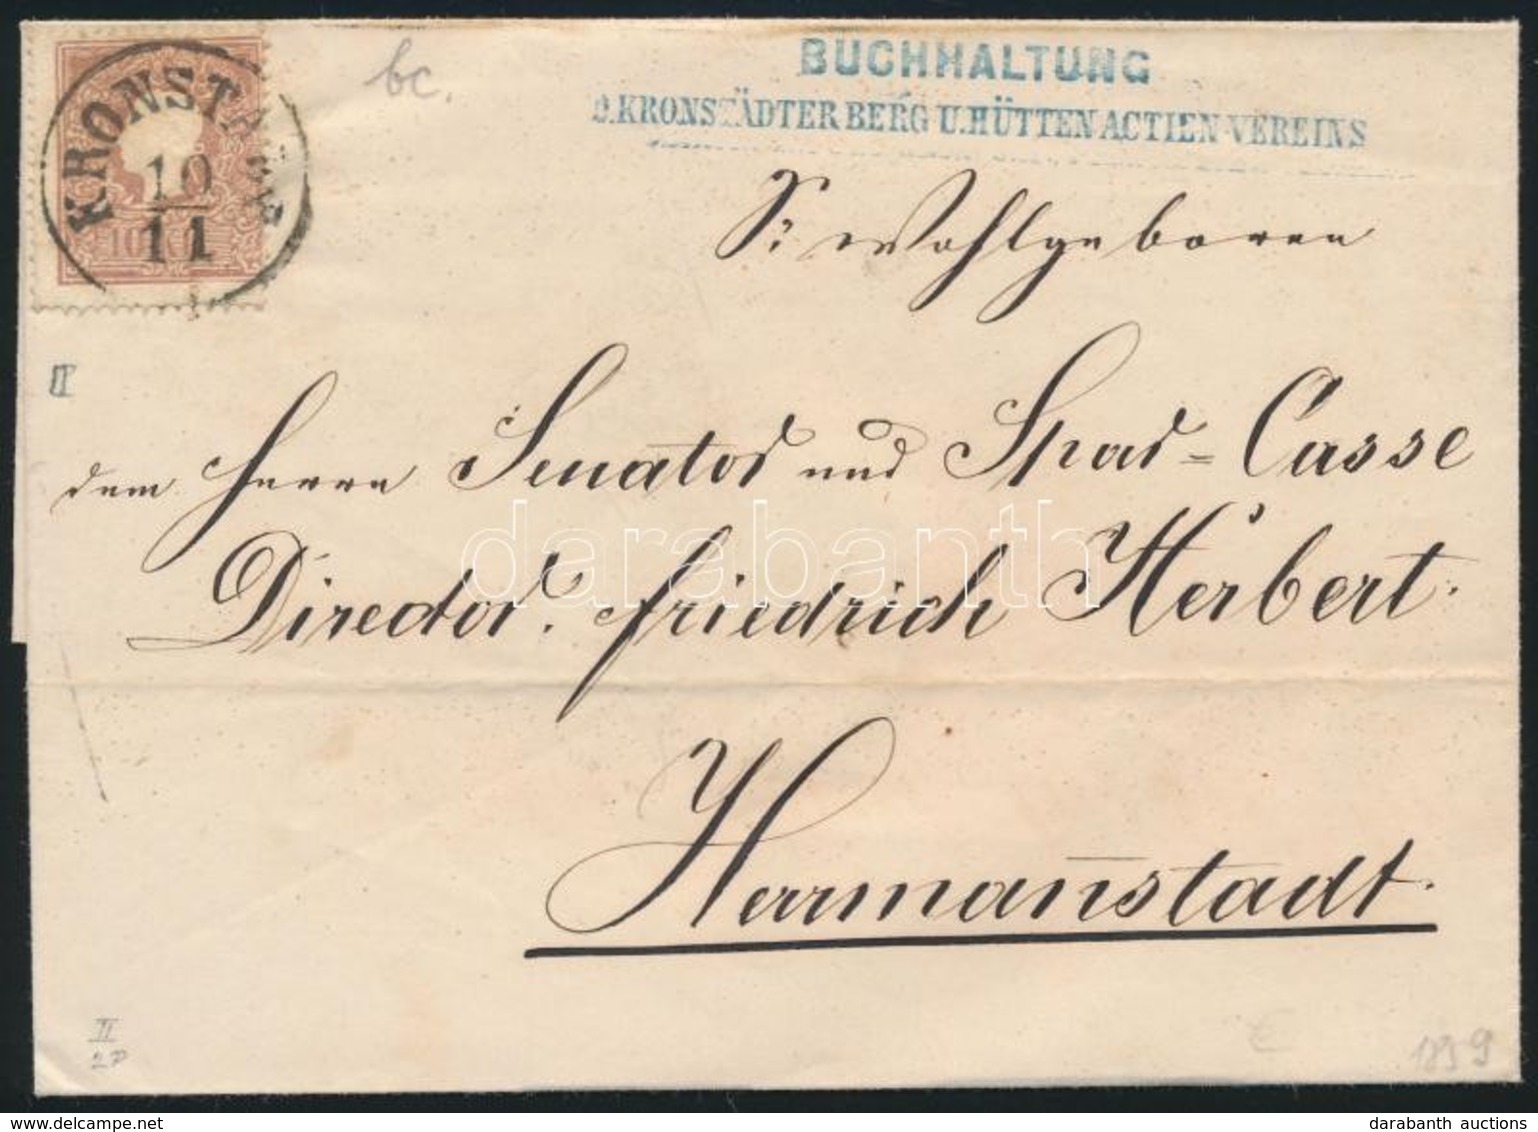 BUCHHALTUNG
D.KRONSTÄDTER BERG U.HÜTTEN ACTIEN-VEREINS
KRONSTADT
10
11
10
bc.
Sr Wohlgeboren
II
dem Herrn Senator und Spar=Casse
Director. Friedrich Herbert.
darabanth
Herrmañstadt.
II
1859
darabanth auctions